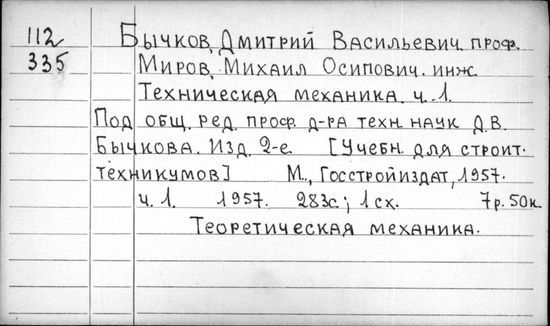 112 Бычков, Дмитрий Васильевич. проф.
335 Миров, Михаил Осипович. инж.
Техническая механика. ч.1.
Под общ. ред. проф. д-ра техн. наук Д.В.
Бычкова. Изд. 2-е. [Учебн. для строит.
техникумов] М., Госстройиздат, 1957.
ч.1. 1957. 283с.; 1 сх. 7р. 50к.
Теоретическая механика.